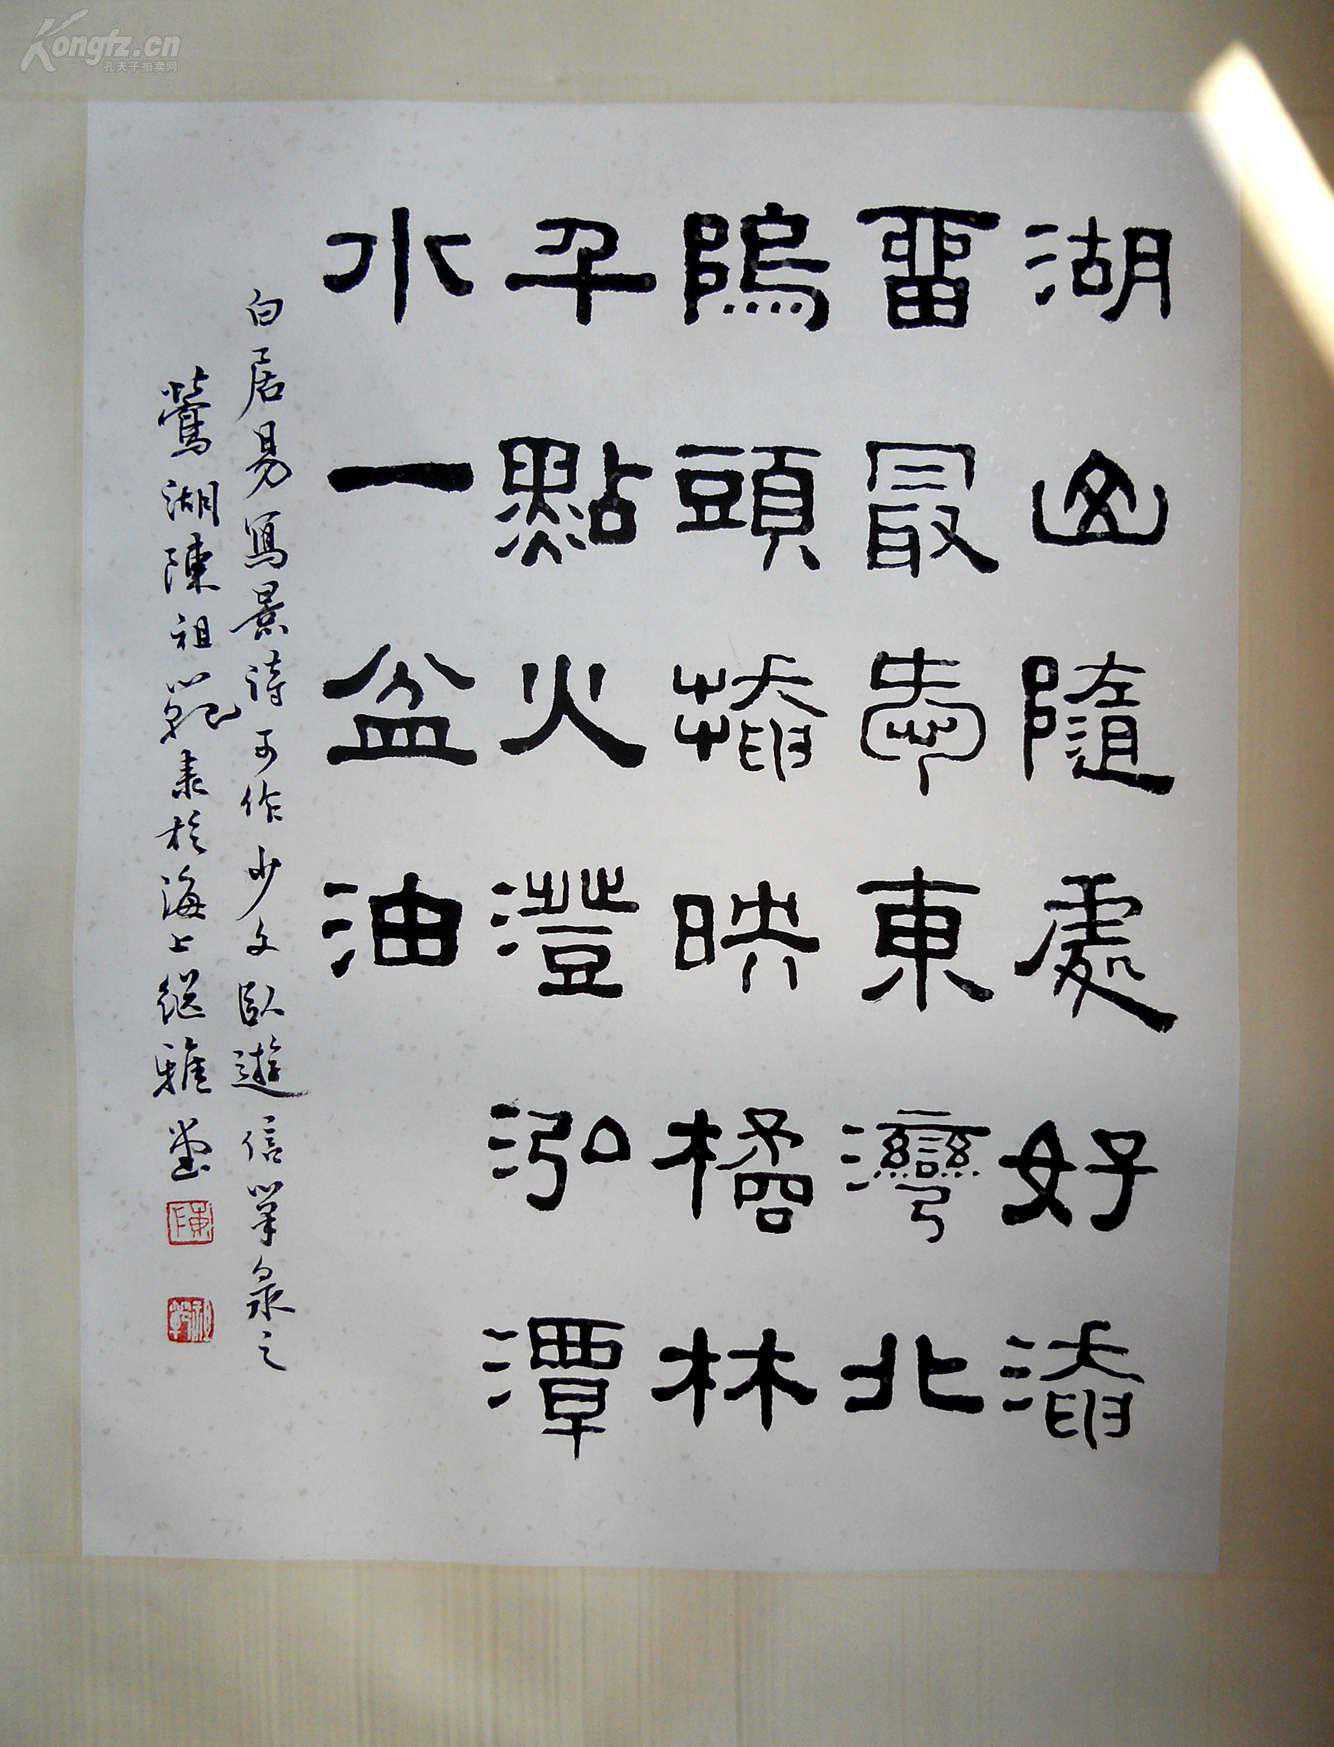 Kongfz.cn
孔夫子拍卖网
湖山隨處好淹
留最愛東灣北
隖頭掩映橘林
千點火澄泓潭
水一盆油
白居易寫景詩可作少文臥遊信筆录之
鶯湖陳祖範隶於海上継雅堂